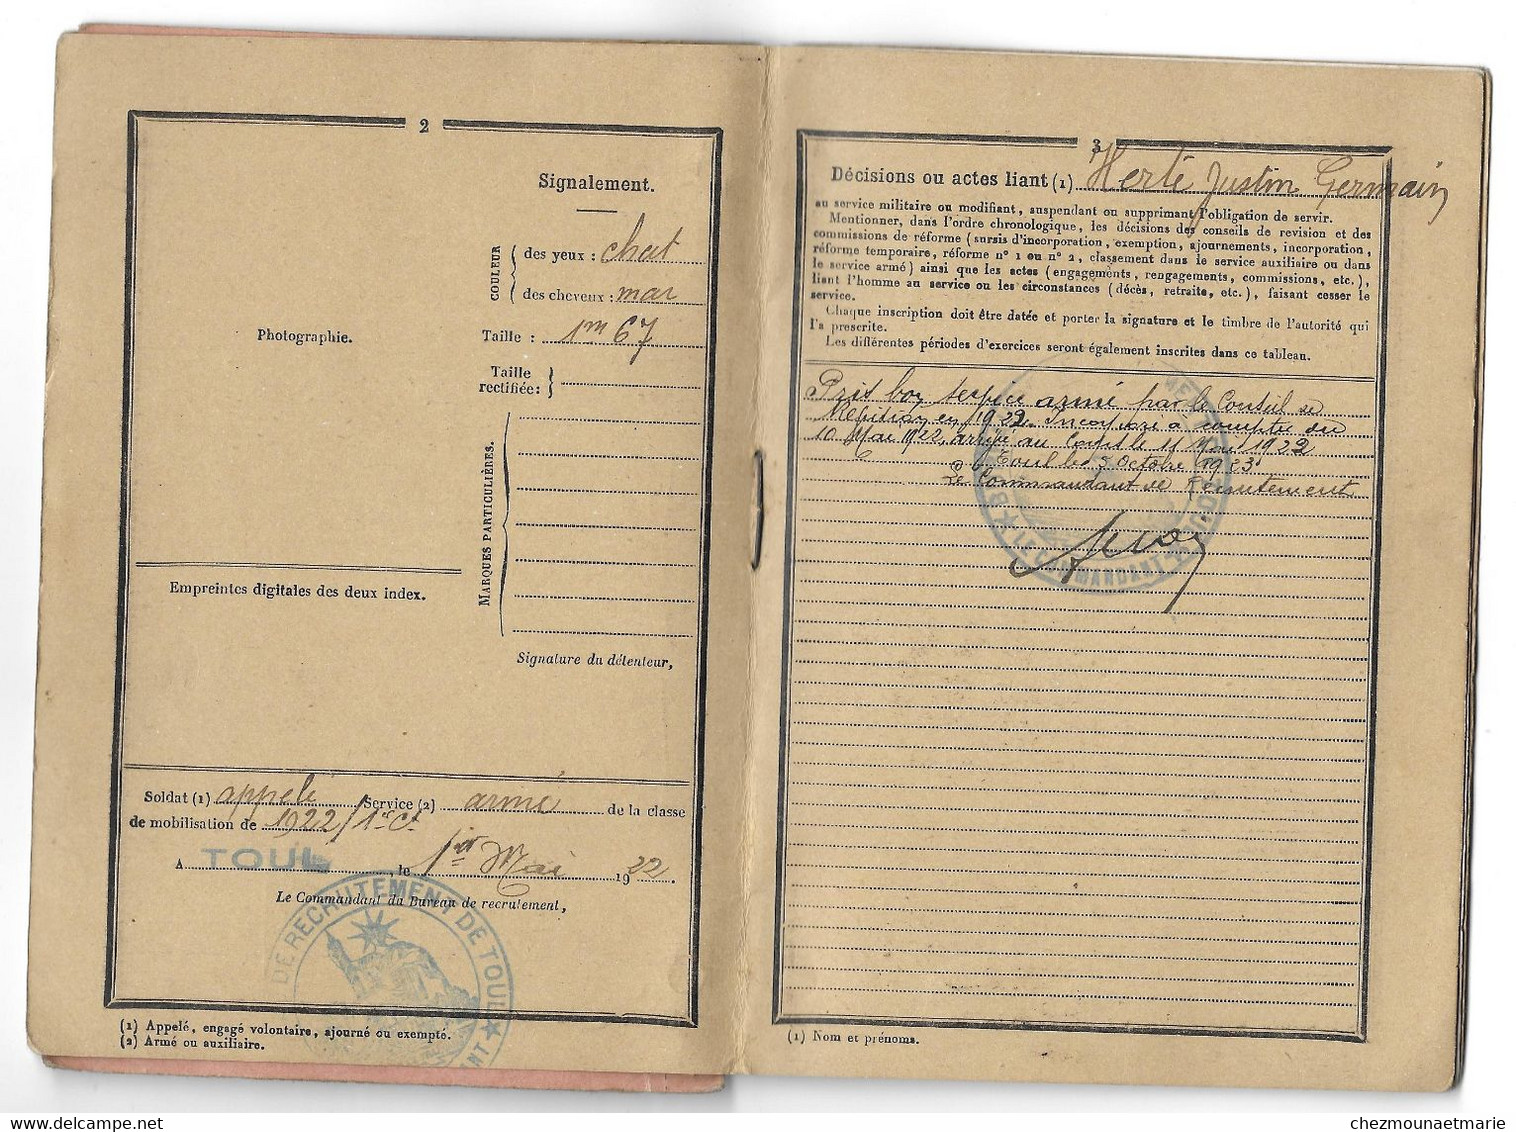 2
Signalement.
COULEUR
des yeux : chat
des cheveux : mar
Photographie.
Taille : 1m 67
Taille
rectifiée :
MARQUES PARTICULIÈRES.
Empreintes digitales des deux index.
Signature du détenteur,
Soldat (1) appelé Service (2) armé de la classe
de mobilisation de 1922/1er Ct
A TOUL, le 1er Mai 1922.
Le Commandant du Bureau de recrutement,
DE RECRUTEMENT DE TOUL
(1) Appelé, engagé volontaire, ajourné ou exempté.
(2) Armé ou auxiliaire.
3
Décisions ou actes liant (1) Herté Justin Germain
au service militaire ou modifiant, suspendant ou supprimant l'obligation de servir.
Mentionner, dans l'ordre chronologique, les décisions des conseils de revision et des
commissions de réforme (sursis d'incorporation, exemption, ajournements, incorporation,
réforme temporaire, réforme n° 1 ou n° 2, classement dans le service auxiliaire ou dans
le service armé) ainsi que les actes (engagements, rengagements, commissions, etc.),
liant l'homme au service ou les circonstances (décès, retraite, etc.), faisant cesser le
service.
Chaque inscription doit être datée et porter la signature et le timbre de l'autorité qui
l'a prescrite.
Les différentes périodes d'exercices seront également inscrites dans ce tableau.
Pris bon service armé par le Conseil de
Révision en 1922. Incorporé à compter du
10 Mai 1922, arrivé au Corps le 11 Mai 1922
Toul le 5 Octobre 1923
Le Commandant de Recrutement
LE COMMANDANT
(1) Nom et prénoms.
chezmounaetmarie